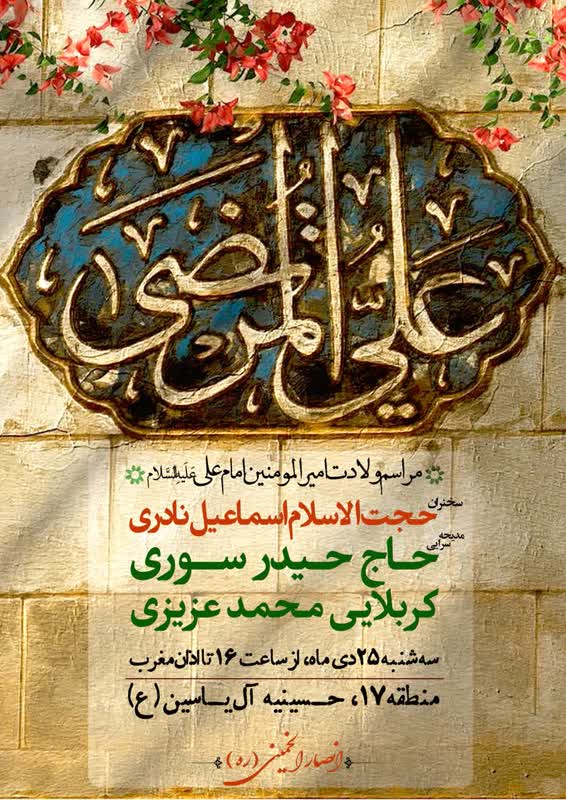 علي المرتضى
مراسم ولادت امیرالمومنین امام علی عَلَیهِ‌السَّلام
سخنران
حجت الاسلام اسماعیل نادری
مدیحه سرایی
حاج حیدر سوری
کربلایی محمد عزیزی
سه شنبه ۲۵ دی ماه، از ساعت ۱۶ تا اذان مغرب
منطقه ۱۷، حسینیه آل یاسین (ع)
انصار الخمینی (ره)